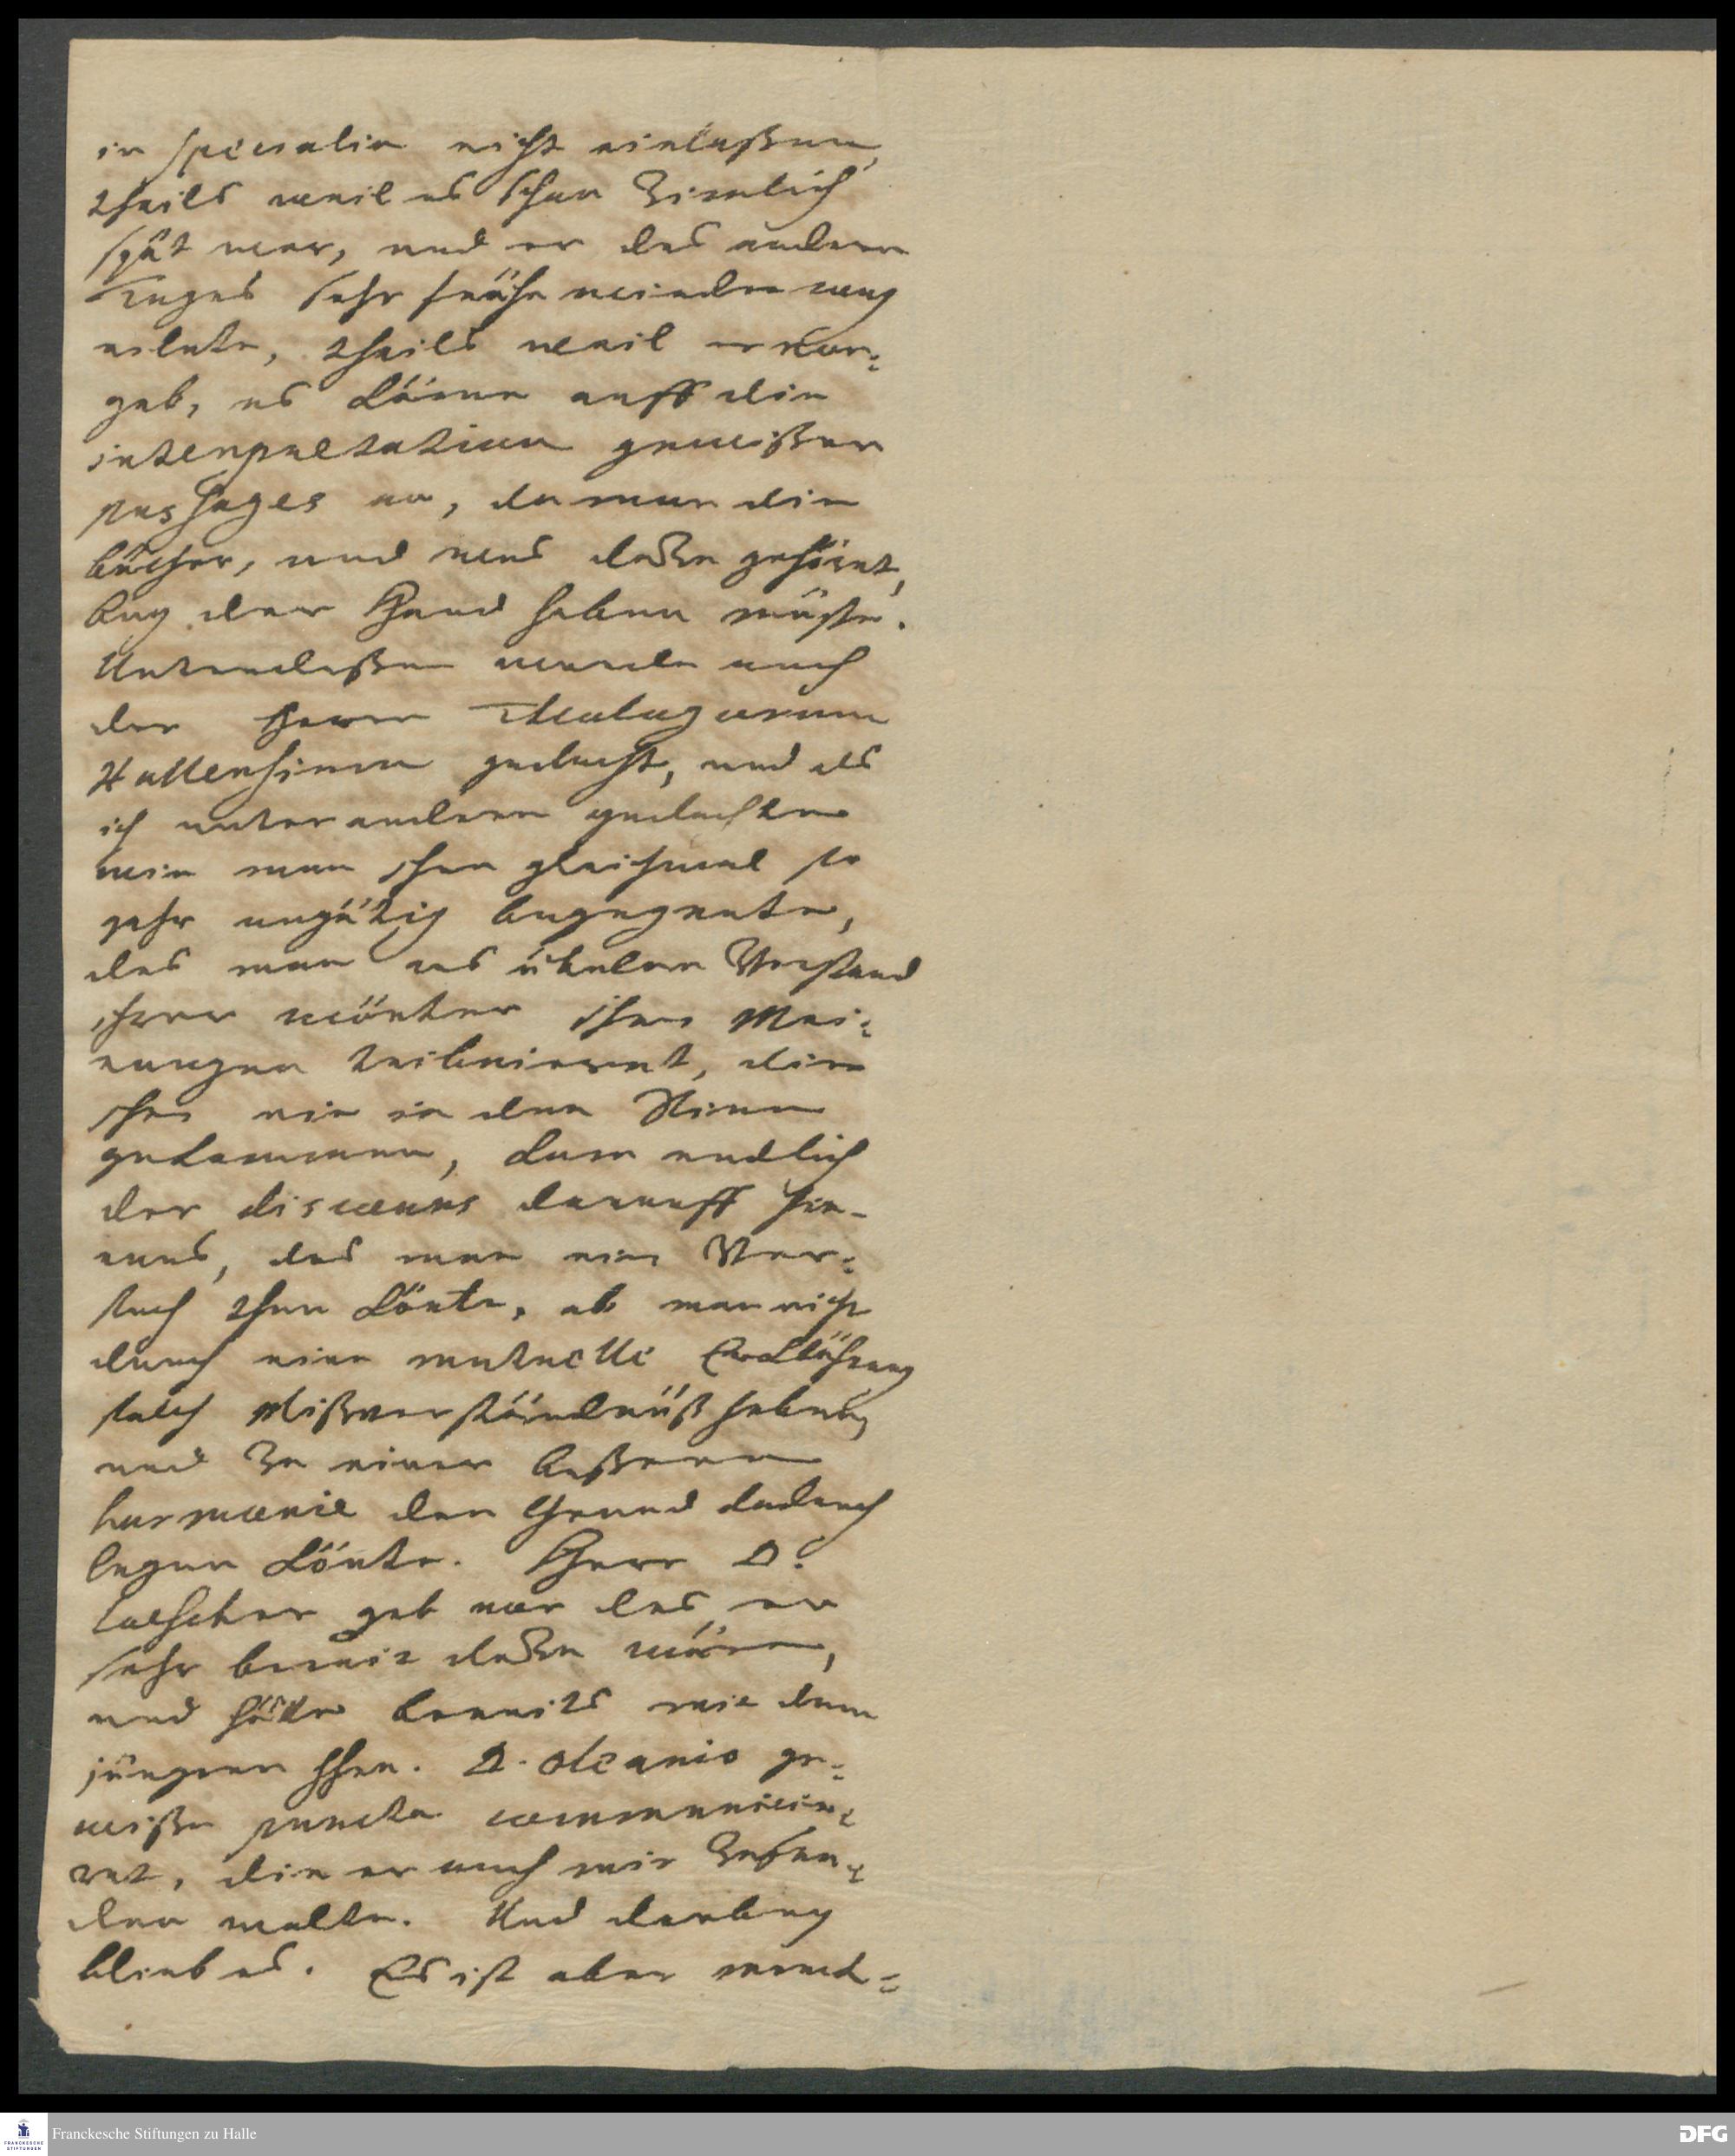 in specialia nicht einlaßen,
theils weil es schon Zimlich
spät war, und er des andern
Tages sehr frühe wieder weg
eilete, theils weil er vor-
gab, es käme auff die
interpretation gewißer
passages an, da man die
bücher, und was daZu gehöret,
bey der Hand haben müste.
Unterdeßen wurde auch
der Herrn Theologorum
Hallensium gedacht, und als
ich unter andern gedachte
wie man ihnen gleichwol so
gahr ungütig begegnete,
das man aus übelem Verstand
ihrer wörter ihnen Mei-
nungen zuschriebe, die
ihnen nie in den Sinn
gekommen, kam endlich
der discours darauff hin-
aus, das man einen Ver-
such thun könte, ob man nicht
durch eine mutuelle Erklährung
solch Mißverständnüß heben,
und Zu einer beßeren
harmonie den Grund dadurch
legen könte. Herr D.
Loescher gab vor das er
sehr bereit daZu wäre,
und hätte bereits mit dem
jüngern Hhn. D. Oleario ge-
wiße puncta communici-
ret, die er auch mir Zusen-
den wolte. Und darbey
blieb es. Es ist aber merck-
Franckesche Stiftungen zu Halle
DFG
FRANCKESCHE
STIFTUNGEN